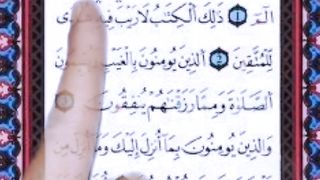 الٓمٓ ١ ذَٰلِكَ ٱلْكِتَٰبُ لَا رَيْبَ فِيهِ
لِّلْمُتَّقِينَ ٢ ٱلَّذِينَ يُؤْمِنُونَ بِٱلْغَيْبِ
ٱلصَّلَوٰةَ وَمِمَّا رَزَقْنَٰهُمْ يُنفِقُونَ ٣
وَٱلَّذِينَ يُؤْمِنُونَ بِمَآ أُنزِلَ إِلَيْكَ وَمَآ أُنزِلَ مِن